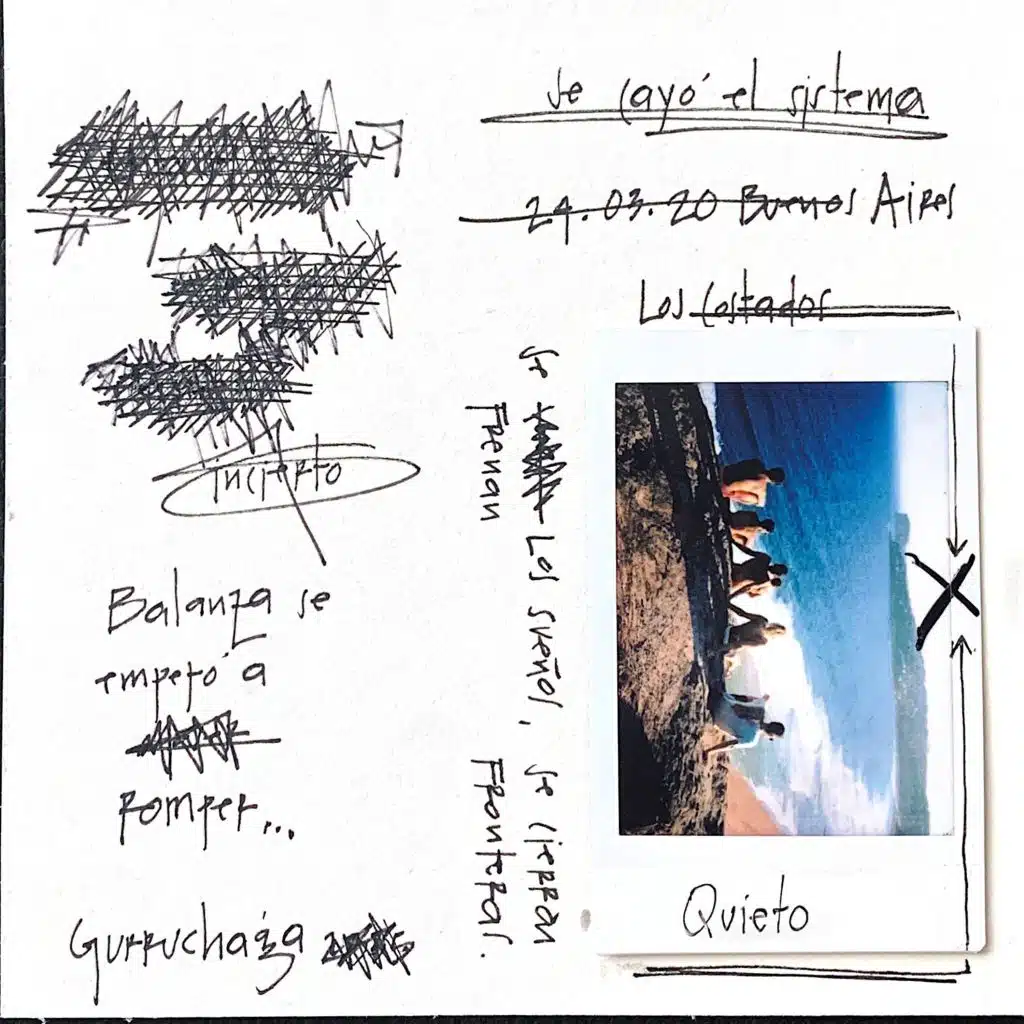 incierto
Balanza se
empezó a
romper...
Gurruchaga
se cayó el sistema
24.03.20 Buenos Aires
Los Costados
se frenan los sueños, se cierran
fronteras.
Quieto